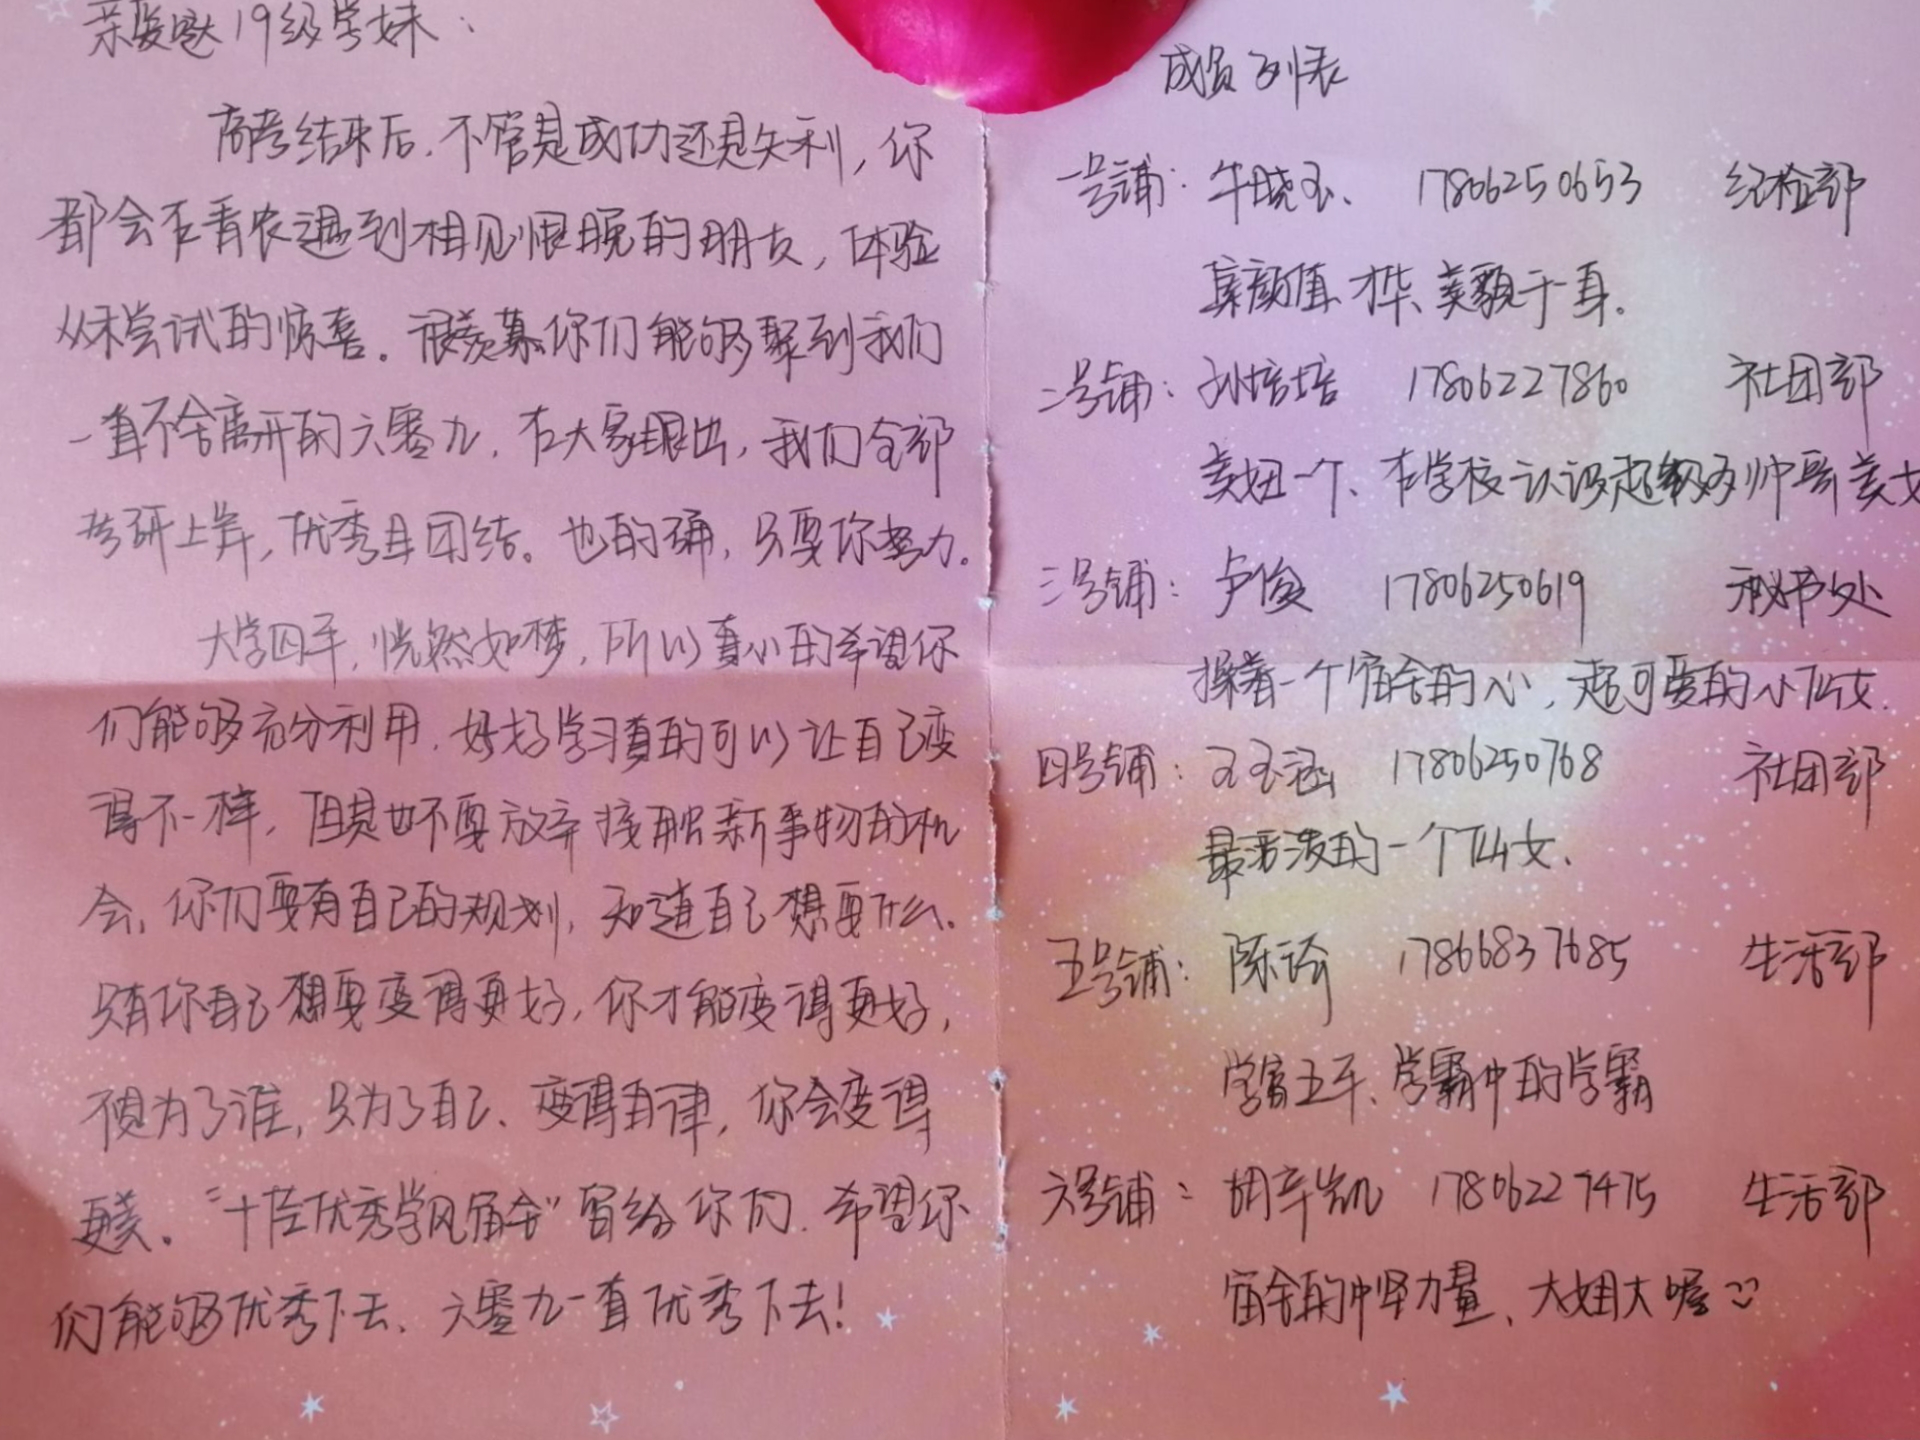 亲爱哒19级学妹：
高考结束后，不管是成功还是失利，你
都会在青农遇到相见恨晚的朋友，体验
从未尝试的惊喜。很羡慕你们能够聚到我们
一直不舍离开的六零九，在大家眼中，我们全部
考研上岸，优秀且团结。也的确，只要你努力。
大学四年，恍然如梦，所以真心的希望你
们能够充分利用，好好学习真的可以让自己变
得不一样，但是也不要放弃接触新事物的机
会，你们要有自己的规划，知道自己想要什么.
只有你自己想要变得更好，你才能变得更好，
不是为了谁，只为了自己、变得自律，你会变得
更美。"十佳优秀学风宿舍"留给你们. 希望你
们能够优秀下去、六零九一直优秀下去！
成员列表
一号铺：牛晓玉、 17806250653 纪检部
集颜值、才华、美貌于一身.
二号铺：孙培培 17806227860 社团部
美妞一个、在学校认识超级多帅哥美女
三号铺：卢俊 17806250619 秘书处
操着一个宿舍的心，超可爱的小仙女.
四号铺：王玉涵 17806250768 社团部
最活泼的一个仙女、
五号铺：陈 17866837685 生活部
学富五车、学霸中的学霸
六号铺：胡辛凯 17806227475 生活部
宿舍的中坚力量、大姐大喔